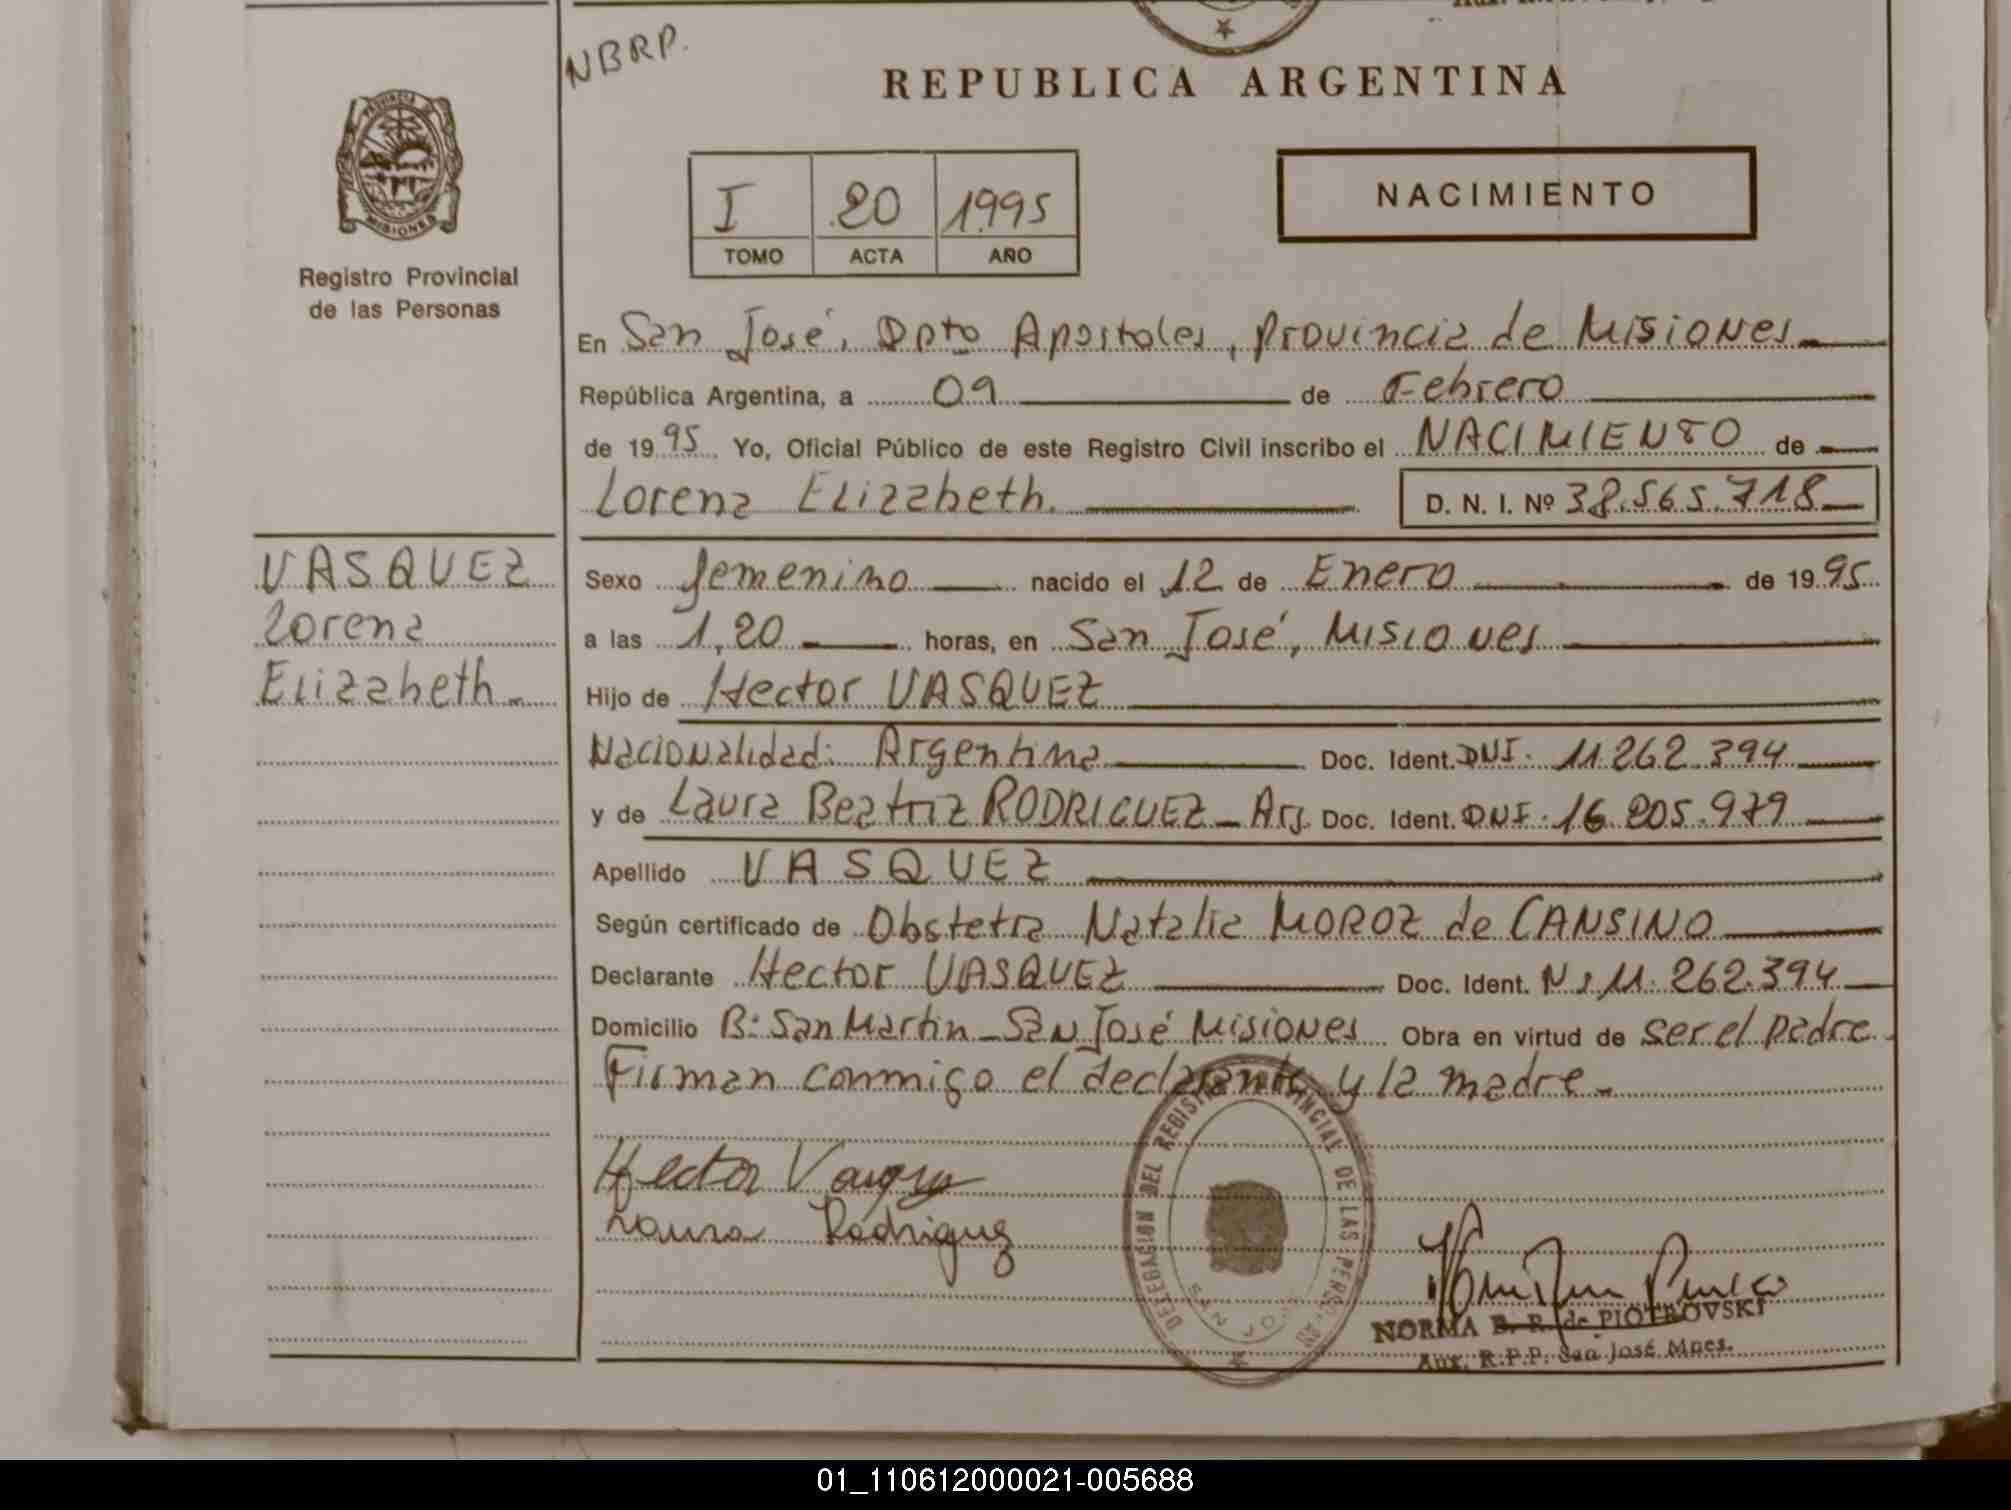 NBRP.
REPUBLICA ARGENTINA
PROVINCIA DE
MISIONES
Registro Provincial
de las Personas
I 20 1995
TOMO ACTA AÑO
NACIMIENTO
En San José, Dpto Apostoles, Provincia de Misiones
República Argentina, a 09 de Febrero
de 1995 Yo, Oficial Público de este Registro Civil inscribo el NACIMIENTO de
Lorena Elizabeth. D. N. I. Nº 38.565.718
VASQUEZ
Lorena
Elizabeth
Sexo femenino nacido el 12 de Enero de 1995
a las 1,20 horas, en San José, Misiones
Hijo de Hector VASQUEZ
Nacionalidad: Argentina Doc. Ident. DNI. 11.262.394
y de Laura Beatriz RODRIGUEZ - Arg. Doc. Ident. DNI. 16.205.979
Apellido VASQUEZ
Según certificado de Obstetra Natalia MOROZ de CANSINO
Declarante Hector VASQUEZ Doc. Ident. Nº 11.262.394
Domicilio B: San Martin - San José Misiones Obra en virtud de ser el padre.
Firman conmigo el declarante y la madre.
Hector Vasquez
Laura Rodriguez
DELEGACION DEL REGISTRO PROVINCIAL DE LAS PERSONAS
SAN JOSE
NORMA B. R. de PIOTROVSKI
Aux. R.P.P. San José Mnes.
01_110612000021-005688